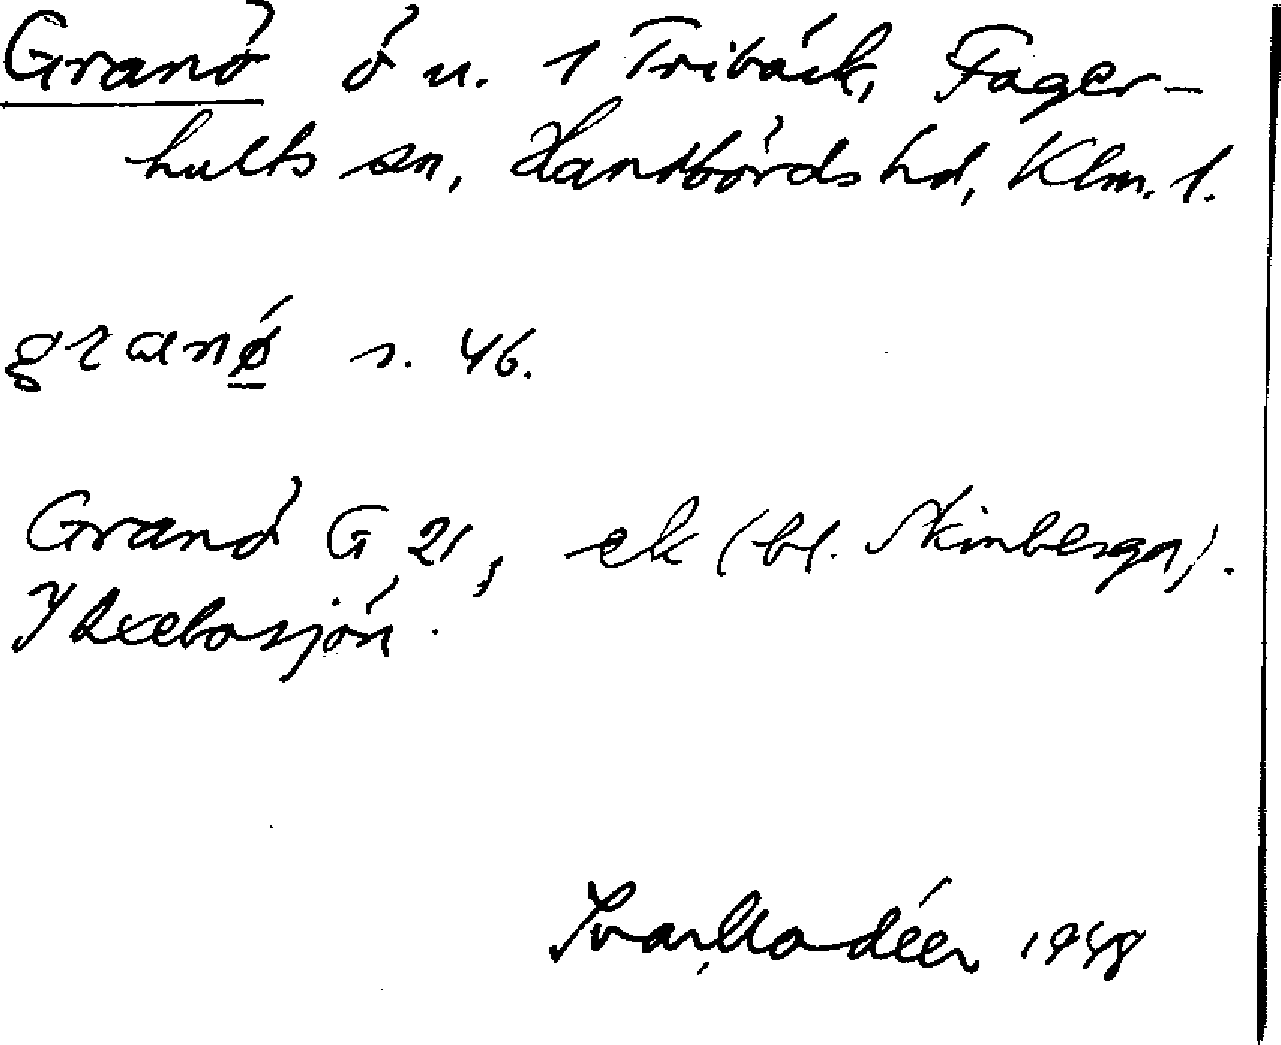 Granö ö u. 1 Tribäck, Fager-
hults sn, Handbörds hd, Klm. l.
granǿ s. 46.
Granö G 21, ek (bl. Skinberga).
I Axebosjön.
Ivar Modéer 1948